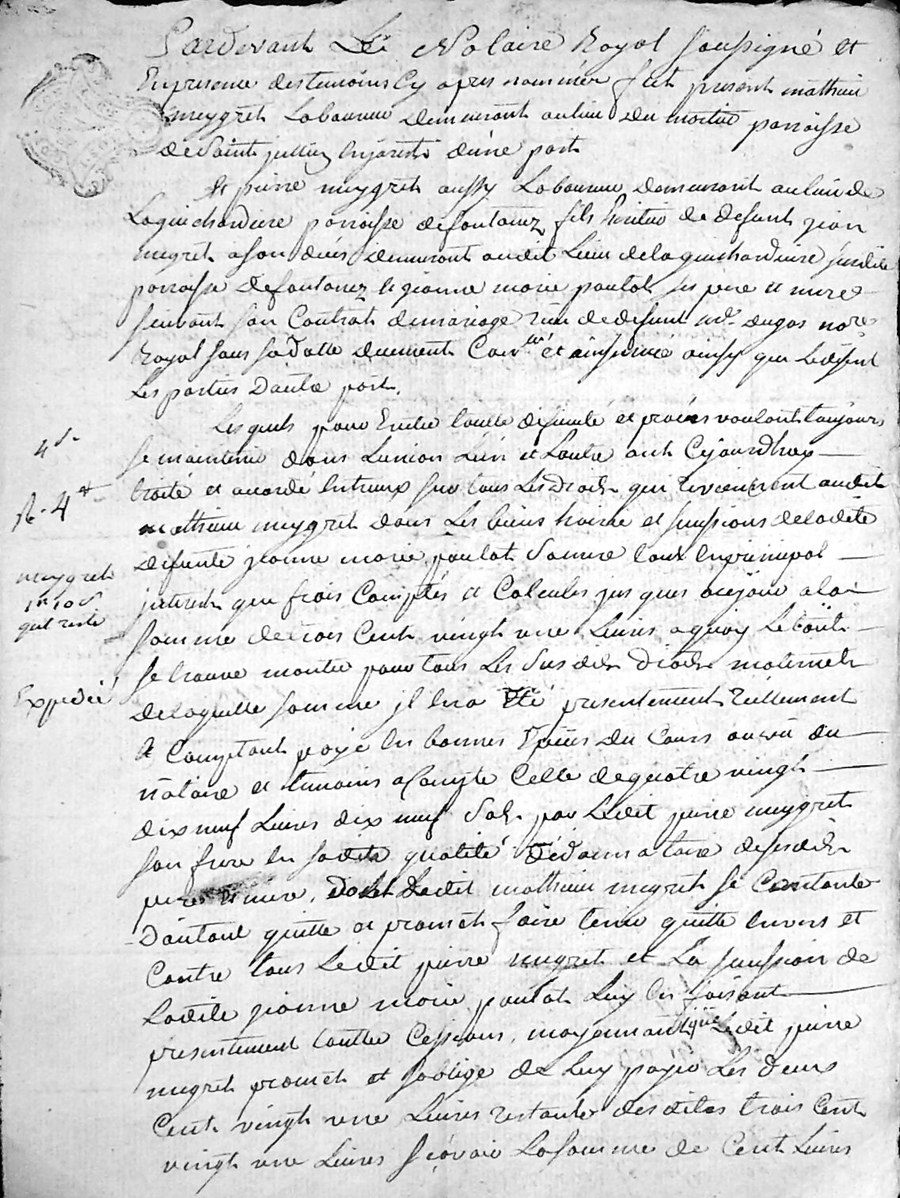 Pardevant Le Notaire Royal soussigné et
En presence des temoins Cy apres nommés fut present mathieu
meygret Laboureur demeurant au lieu du mortier parroisse
de Saint jullien en jarest d'une part
Et pierre meygret aussy Laboureur demeurant au lieu de
Laguichardiere parroisse defontanez fils heritier de defunt jean
meygret a son deces demeurant audit Lieu delaguichardiere susdite
parroisse defontanez et jeanne marie poulat ses pere et mere
suivant son Contrat demariage reçu de defunt me dugas nore
Royal sous sa datte duement Con.lé et insinué ainsy que le disent
Les parties d'autre part.
Lesquels pour Eviter toutte dificulté et procès voulant toujours
se maintenir dans Lunion L'un et Lautre ont Cejourdhuy
traité et acordé Entreux sur tous Les droits qui reviennent audit
mathieu meygret dans Les biens hoirie et sucession deladite
defunte jeanne marie poulat sa mere tant en principal
interest que frais Comptés et Calculés jusques aujour a la
somme detrois Cent vingt une Livres aquoy Le tout
se trouve monter pour tous Les susdits droits maternels
delaquelle somme il luy a Eté presentement réellement
et Comptant payé en bonnes Especes du Cours au vu du
notaire et temoins acompte Celle dequatre vingt
dix neuf Livres dix neuf sols par Ledit pierre meygret
son frere en sadite qualité desdits
pere et mere, dont Ledit mathieu meygret se Contante
d'autant quitte et promet faire tenir quitte envers et
Contre tous Ledit pierre meygret et La sucession de
Ladite jeanne marie poulat Luy en faisant
presentement toutte Cession, moyennant que Ledit pierre
meygret promet et soblige de Luy payer Les deux
Cent vingt une Livres restante desdites trois Cent
vingt une Livres sçavoir La somme de Cent Livres
4d.
R. 4
meygret
quil reste
Expedié